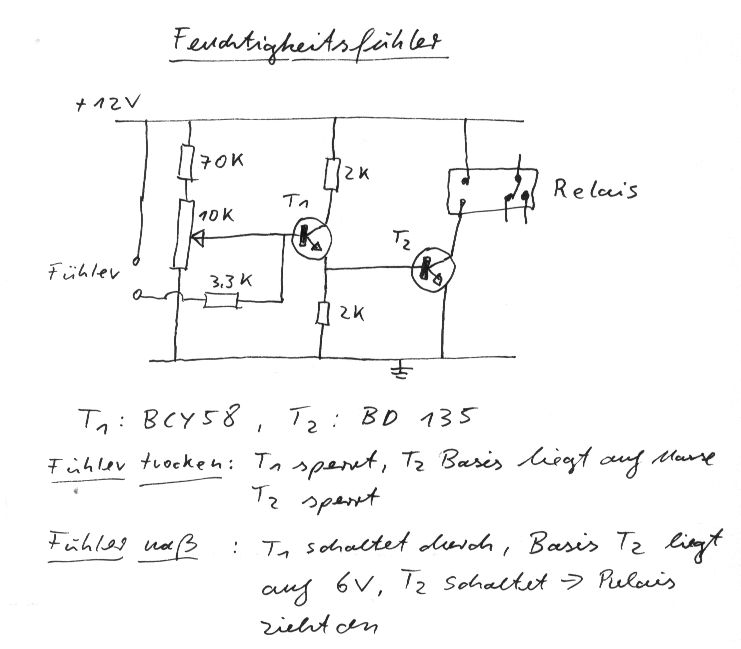 Feuchtigkeitsfühler
+12V
70K
2K
T1
10K
Relais
T2
Fühler
3.3K
2K
T1: BCY58, T2: BD 135
Fühler trocken: T1 sperrt, T2 Basis liegt auf Masse
T2 sperrt
Fühler naß : T1 schaltet durch, Basis T2 liegt
auf 6V, T2 schaltet → Relais
zieht an